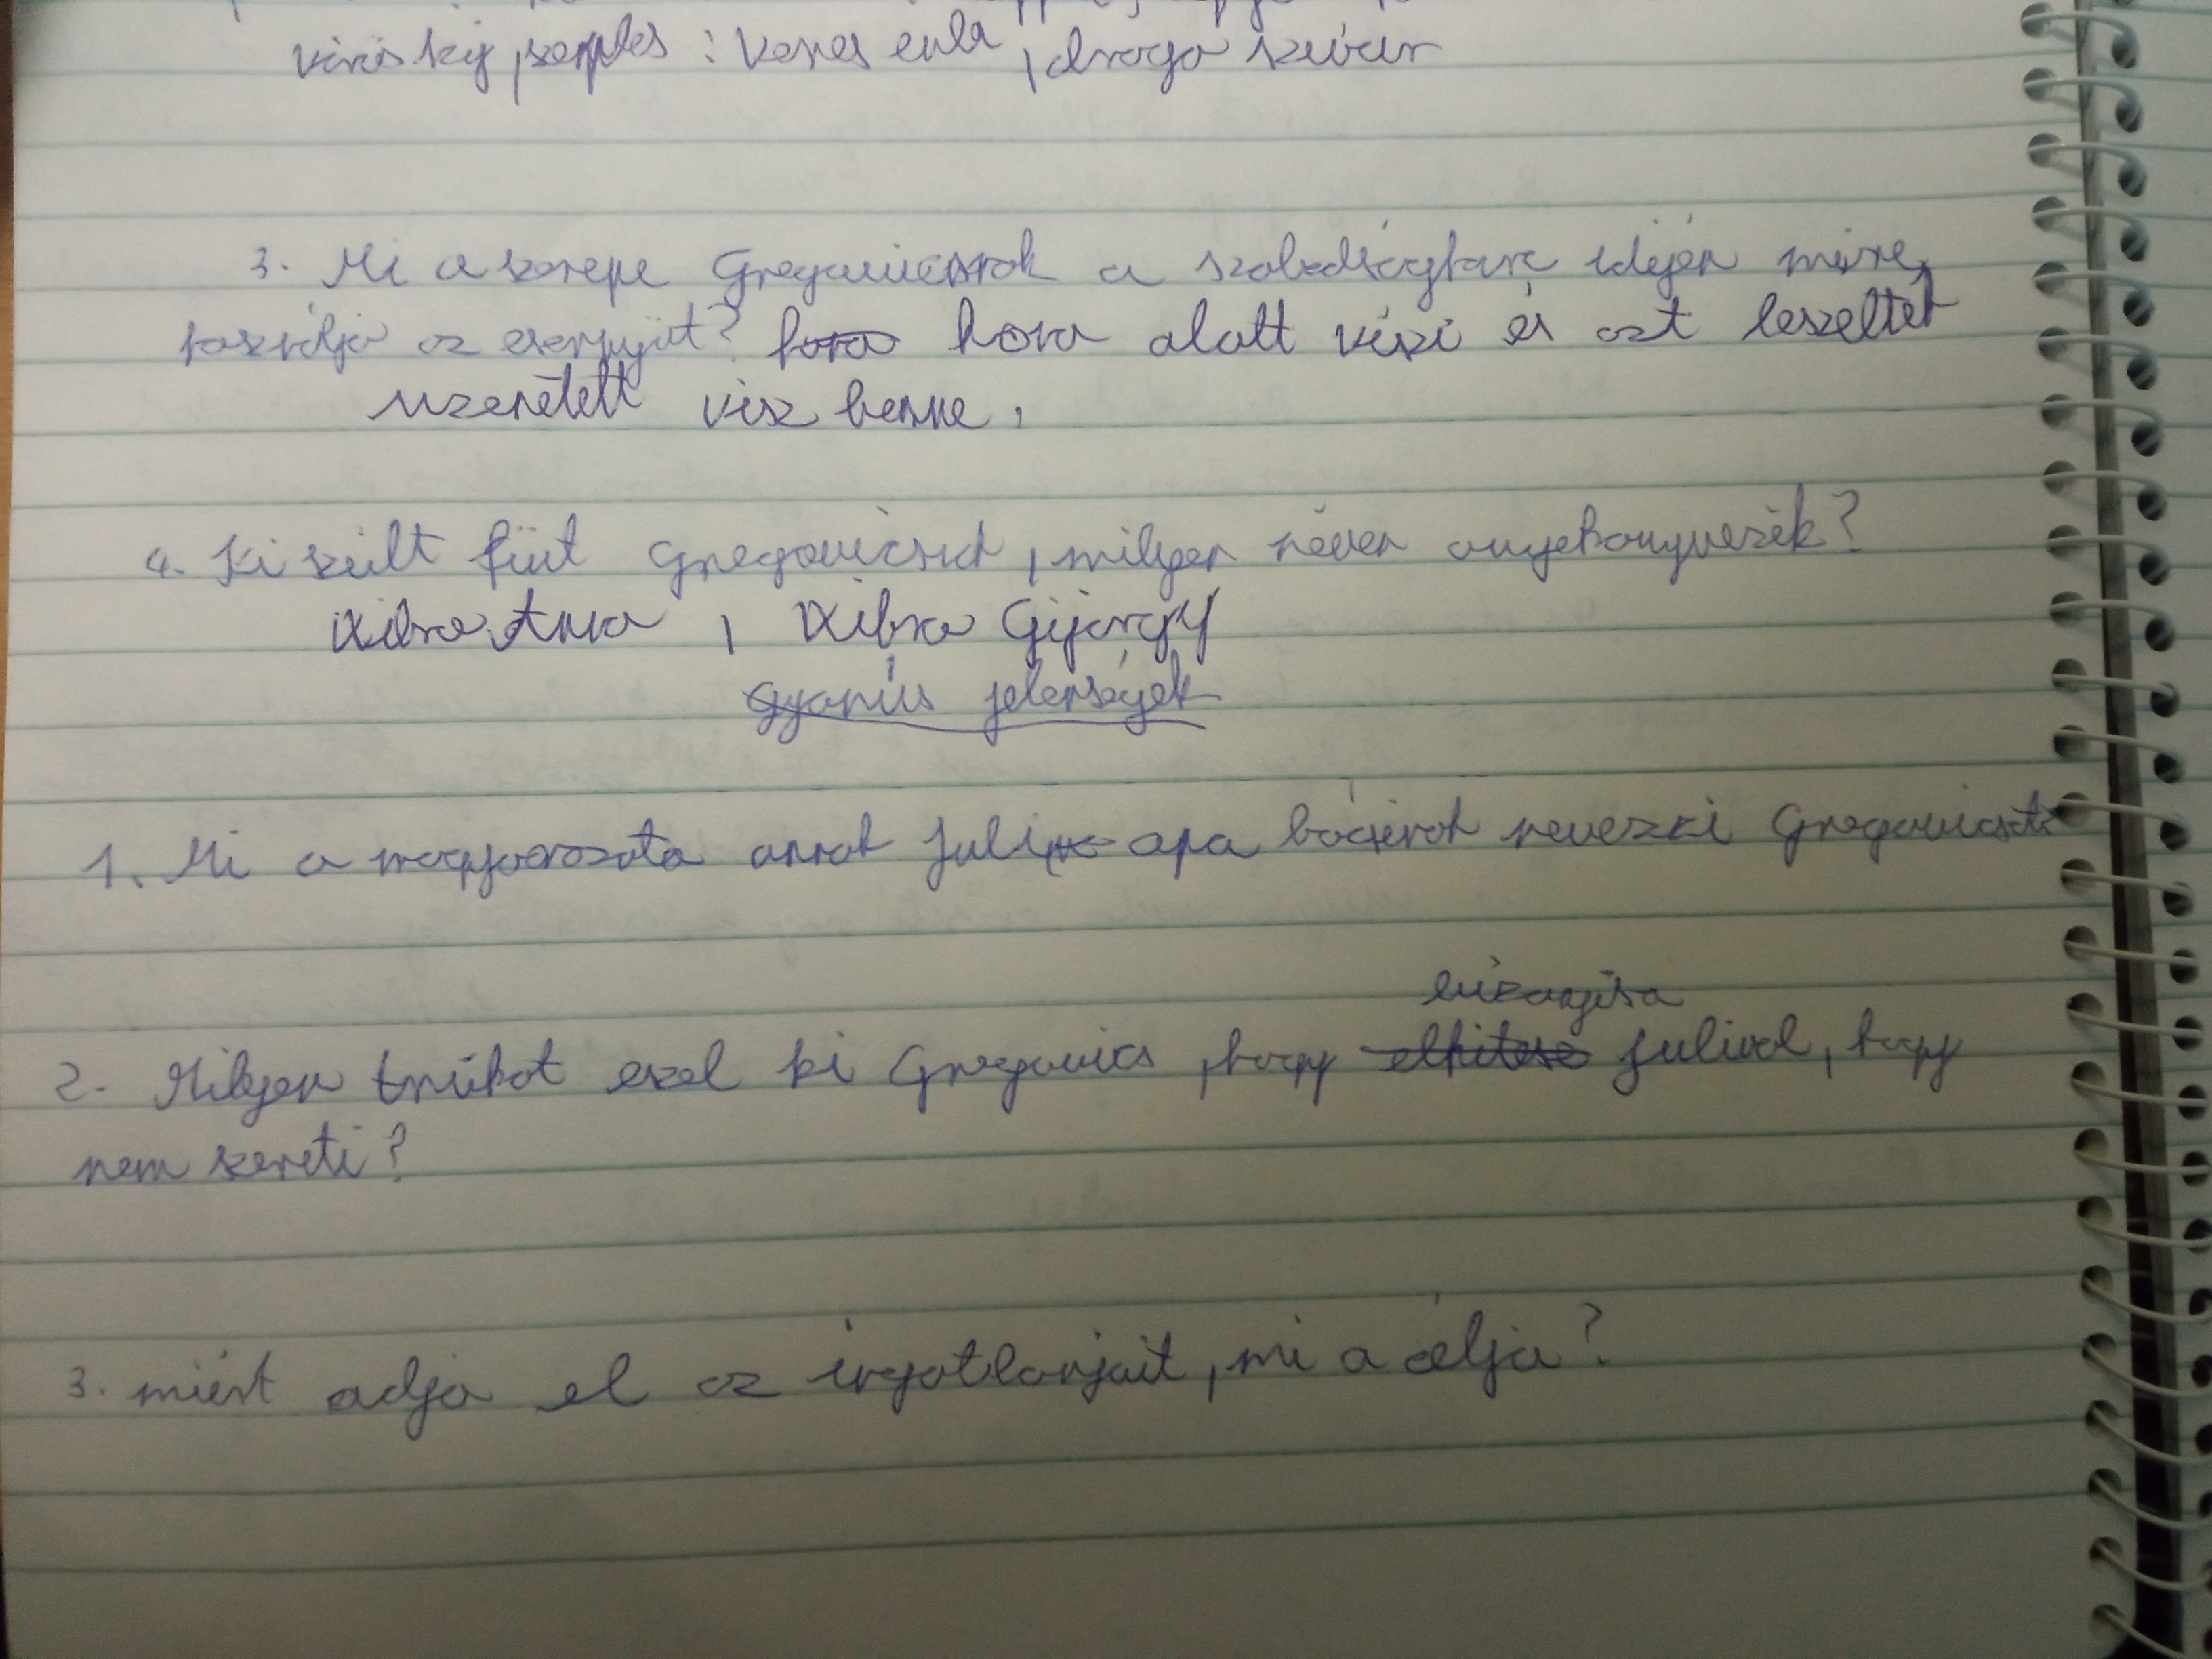 vörös haj, szeplős : Veres enla, drága szivar
3. Mi a szerepe Gregoricsnak a szabadságharc idején mire
használja az esernyőt? hova alatt viszi és azt leszeltek
üzenetett visz benne,
4. Ki szült fiút Gregoricsnak, milyen néven anyekönyvezék?
Wibra Anna, Wibra Gijörgy
Gyanús jelenségek
1. Mi a magyarozata annak Juli apa bácsinak nevezki Gregoricsot
elúzangisa
2. Milyen trüköt eszel ki Gregorics, hogy elhitese Julival, hogy
nem szereti?
3. miért adja el az ingatlanjait, mi a célja?